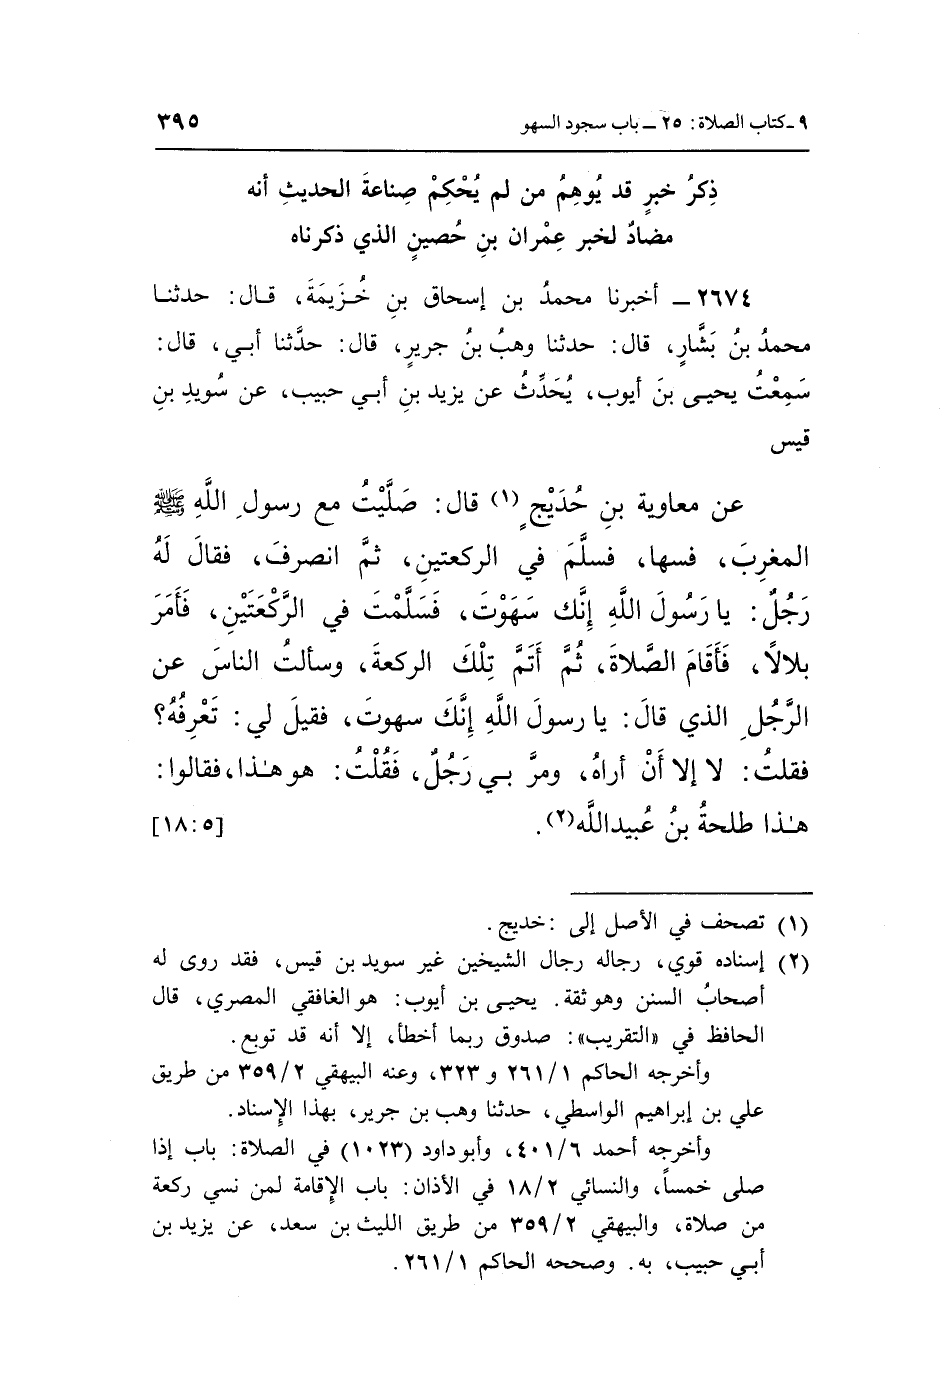 ٩ ـ كتاب الصلاة: ٢٥ ـ باب سجود السهو ٣٩٥
ذِكرُ خبرٍ قد يُوهِمُ من لم يُحْكِمْ صِناعةَ الحديثِ أنه
مضادٌ لخبر عِمْران بنِ حُصينٍ الذي ذكرناه
٢٦٧٤ ـ أخبرنا محمدُ بن إسحاق بنِ خُزَيمَةَ، قال: حدثنا
محمدُ بنُ بَشَّارٍ، قال: حدثنا وهبُ بنُ جريرٍ، قال: حدَّثنا أبي، قال:
سَمِعْتُ يحيى بنَ أيوب، يُحَدِّثُ عن يزيد بنِ أبي حبيب، عن سُويدِ بنِ
قيس
عن معاوية بنِ حُدَيْجٍ(١) قال: صَلَّيْتُ مع رسولِ اللَّهِ ﷺ
المغربَ، فسها، فسلَّمَ في الركعتينِ، ثمَّ انصرفَ، فقالَ لَهُ
رَجُلٌ: يا رَسُولَ اللَّهِ إِنَّك سَهَوْتَ، فَسَلَّمْتَ في الرَّكْعَتَيْنِ، فَأَمَرَ
بلالاً، فَأَقَامَ الصَّلاةَ، ثُمَّ أَتَمَّ تِلْكَ الركعةَ، وسألتُ الناسَ عن
الرَّجُلِ الذي قالَ: يا رسولَ اللهِ إِنَّكَ سهوتَ، فقيلَ لي: تَعْرِفُهُ؟
فقلتُ: لا إلا أَنْ أراهُ، ومرَّ بي رَجُلٌ، فَقُلْتُ: هو هـٰذا، فقالوا:
هـٰذا طلحةُ بنُ عُبيدالله(٢). [١٨:٥]
(١) تصحف في الأصل إلى: خديج.
(٢) إسناده قوي، رجاله رجال الشيخين غير سويد بن قيس، فقد روى له
أصحابُ السنن وهو ثقة. يحيى بن أيوب: هو الغافقي المصري، قال
الحافظ في «التقريب»: صدوق ربما أخطأ، إلا أنه قد توبع.
وأخرجه الحاكم ٢٦١/١ و ٣٢٣، وعنه البيهقي ٣٥٩/٢ من طريق
علي بن إبراهيم الواسطي، حدثنا وهب بن جرير، بهذا الإسناد.
وأخرجه أحمد ٤٠١/٦، وأبو داود (١٠٢٣) في الصلاة: باب إذا
صلى خمساً، والنسائي ١٨/٢ في الأذان: باب الإقامة لمن نسي ركعة
من صلاة، والبيهقي ٣٥٩/٢ من طريق الليث بن سعد، عن يزيد بن
أبي حبيب، به. وصححه الحاكم ٢٦١/١.